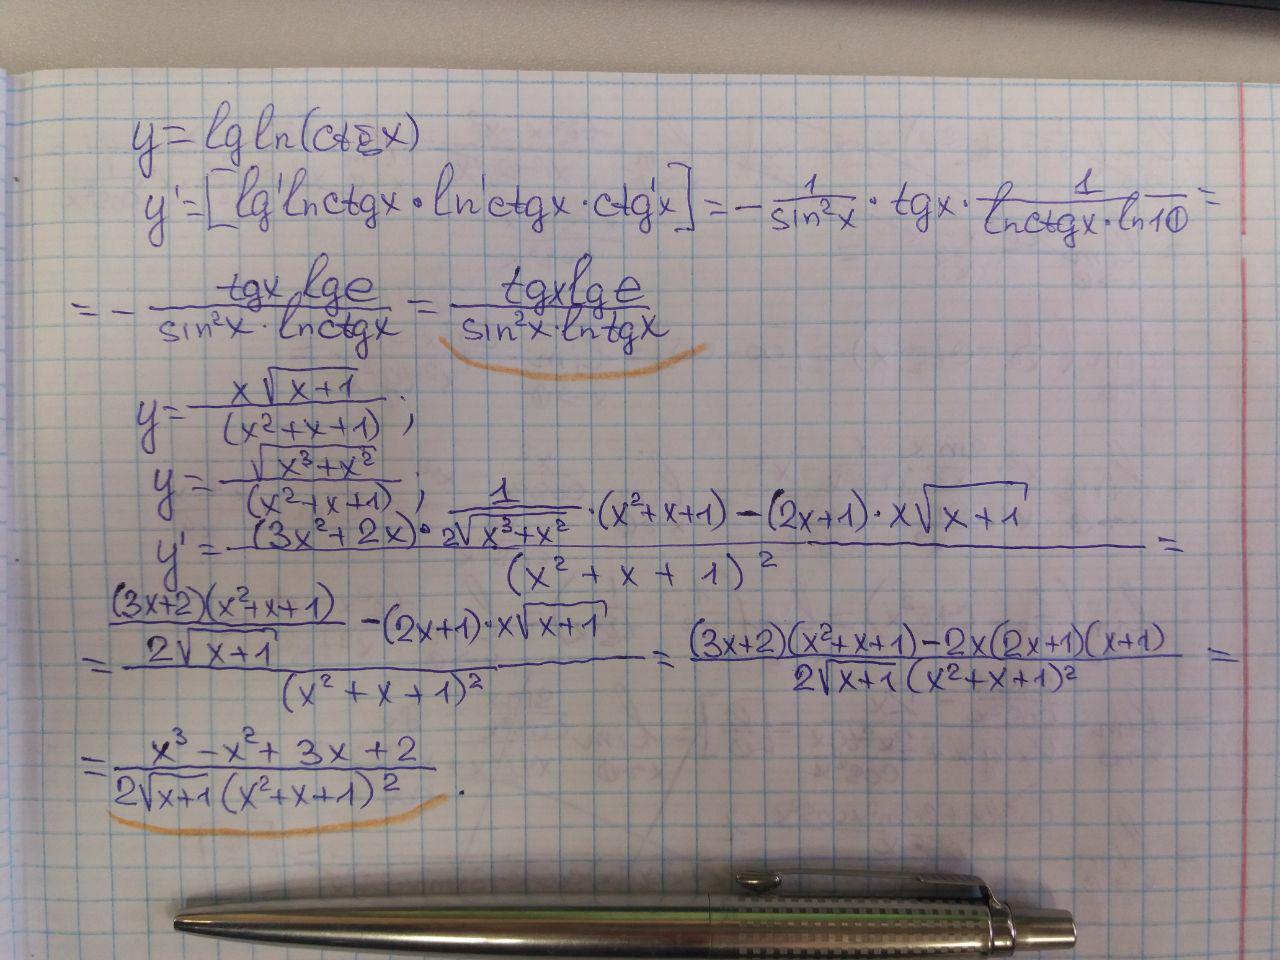 y = lg ln(ctg x)
y' = [lg' ln ctgx · ln' ctgx · ctg' x] = - 1/sin²x · tgx · 1/(ln ctgx · ln 10) =
= - (tgx lg e)/(sin²x · ln ctgx) = (tgx lg e)/(sin²x · ln tgx)
y = x√(x+1)/(x²+x+1);
y = √(x³+x²)/(x²+x+1);
y' = ((3x²+2x) · 1/(2√(x³+x²)) · (x²+x+1) - (2x+1) · x√(x+1))/(x²+x+1)² =
= ((3x+2)(x²+x+1)/(2√(x+1)) - (2x+1) · x√(x+1))/(x²+x+1)² = ((3x+2)(x²+x+1) - 2x(2x+1)(x+1))/(2√(x+1) (x²+x+1)²) =
= (x³ - x² + 3x + 2)/(2√(x+1) (x²+x+1)²).